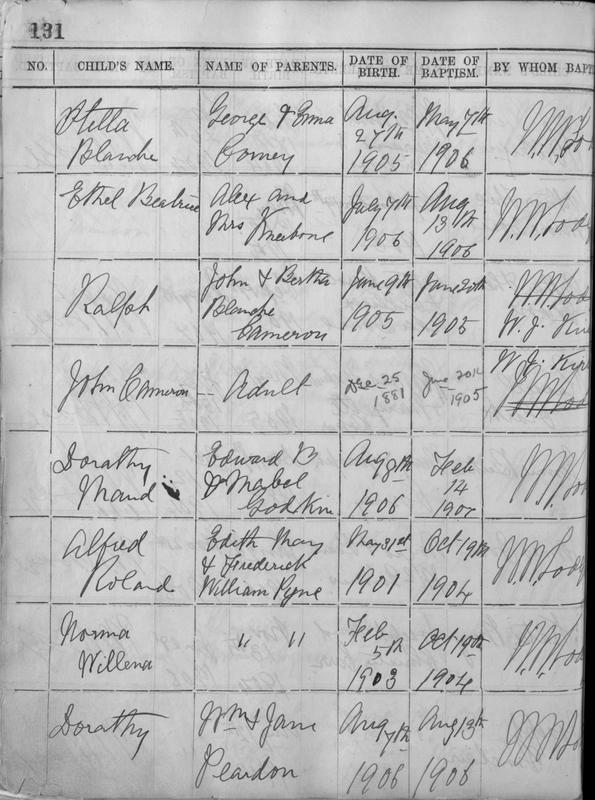 131
NO. CHILD'S NAME. NAME OF PARENTS. DATE OF BIRTH. DATE OF BAPTISM. BY WHOM BAPT
Stella George & Emma Aug. May 7th
Blanche 27th
1905 1906
Ethel Beatrice Alex and July 7th Aug
Mrs Kneebone 13th
1906 1906
John & Bertha June 9th June 20th
Ralph Blanche 1905 1905 W. J.
Cameron
W. J.
John Cameron — Adult Dec 25 June 20th
1881 1905
Dorathy Edward B Aug 8th Feb
Maud & Mabel 14
Godkin 1906
Alfred Edith May May 31st Oct 19th
Roland & Frederick 1901 1904
William Pyne
Norma " " Feb Oct 19th
Willena 5th
1903 1904
Dorathy Wm & Jane Aug Aug 13th
7th
Peardon 1906 1906